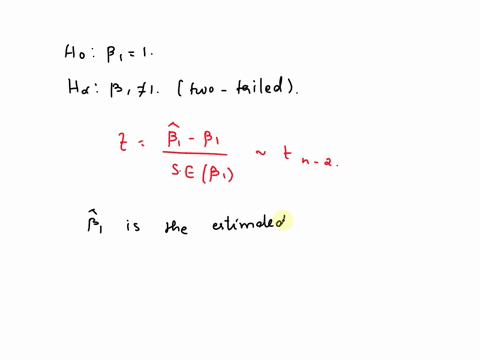 H₀: β₁ = 1.
Hα: β₁ ≠ 1. (two-tailed).
t = (β̂₁ - β₁) / S.E(β₁) ~ t n-2.
β̂₁ is the estimded